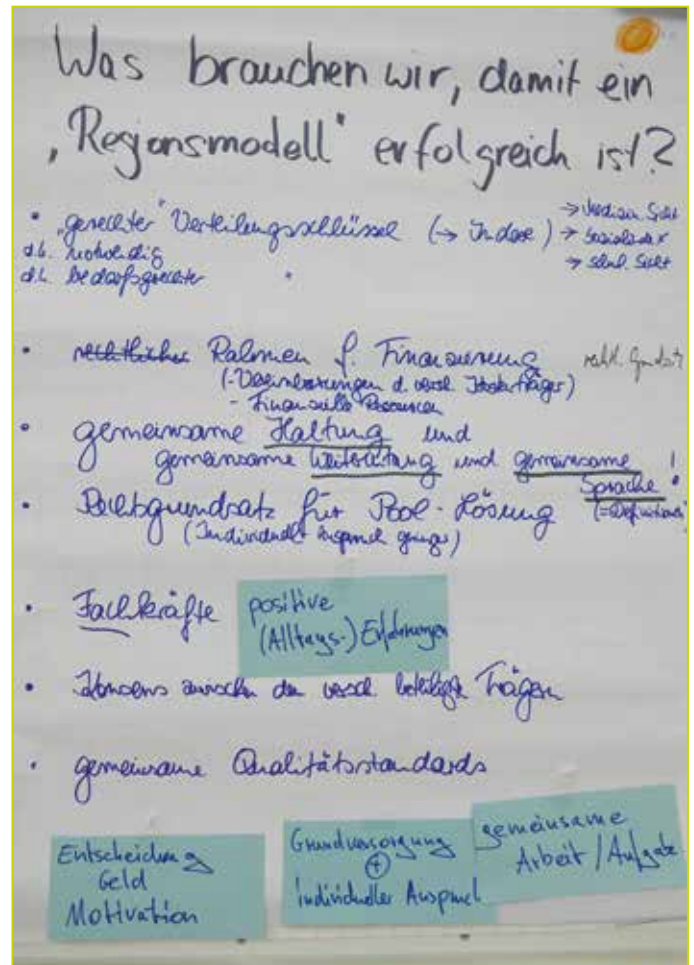 Was brauchen wir, damit ein
„Regionsmodell" erfolgreich ist?
• „gerechter" Verteilungsschlüssel (→ Indexe)
→ medizin. Sicht
→ Sozialindex
→ schul. Sicht
d.h. notwendig
d.h. bedarfsgerechter
• rechtlicher Rahmen f. Finanzierung
(- Vereinbarungen d. versch. Kostenträger)
- Finanzielle Ressourcen
• gemeinsame Haltung und
gemeinsame und gemeinsame !
Sprache
• Rechtsgrundsatz für Pool-Lösung
(Individual- anspruch)
• Fachkräfte
positive
(Alltags-) Erfahrungen
• Konsens zwischen den versch. beteiligten Trägern
• gemeinsame Qualitätsstandards
Entscheidung
Geld
Motivation
Grundversorgung
+
individueller Anspruch
gemeinsame
Arbeit / Aufgabe